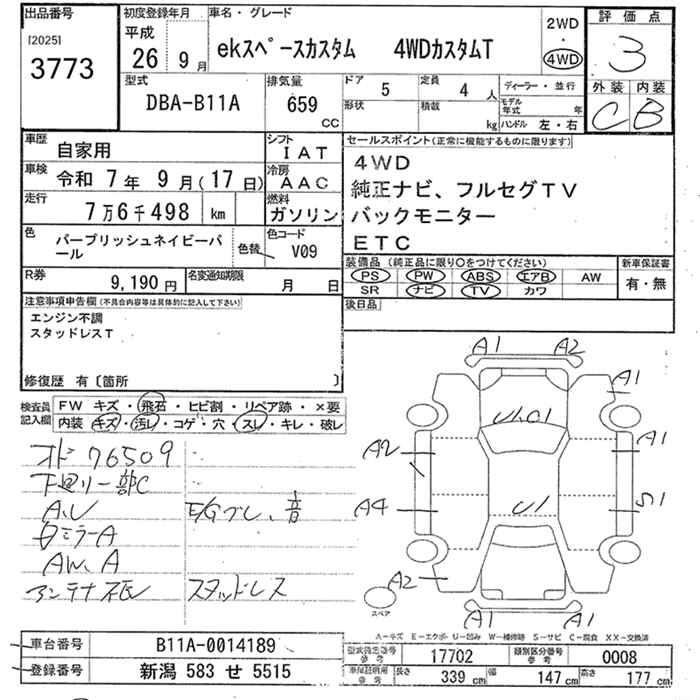 出品番号
[2025]
3773
初度登録年月
平成
26 9 月
車名・グレード
ekスペースカスタム 4WDカスタムT
2WD
・
4WD
評価点
3
外装 内装
C B
型式
DBA-B11A
排気量
659
CC
ドア 5
形状
定員 4 人
積載 kg
ディーラー・並行
モデル年式 年
ハンドル 左・右
車歴 自家用
シフト IAT
車検 令和 7年 9月(17日)
冷房 AAC
走行 7万6千498 km
燃料 ガソリン
色 パープリッシュネイビーパール
色替
色コード V09
R券 9,190 円
名変通知期限 月 日
セールスポイント(正常に機能するものに限ります)
4WD
純正ナビ、フルセグTV
バックモニター
ETC
装備品 (純正品に限り○をつけてください)
PS PW ABS エアB AW
SR ナビ TV カワ
新車保証書
有・無
後日品
注意事項申告欄(不具合内容等は具体的に記入して下さい)
エンジン不調
スタッドレスT
修復歴 有〔箇所 〕
検査員記入欄
FW キズ・飛石・ヒビ割・リペア跡・×要
内装 キズ・汚レ・コゲ・穴・スレ・キレ・破レ
オド 76509
下廻リ一部C
A、U
E/Gブレ、音
ミラーA
AW、A
アンテナ
スタッドレス
A1 A2
A1
U1
A2
A1
A4
U1
S1
A2
A1 A1
スペア
A-キズ E-エクボ U-凹み W-補修跡 S-サビ C-腐食 XX-交換済
車台番号 B11A-0014189
登録番号 新潟 583 せ 5515
型式指定番号 参考 17702
類別区分番号 参考 0008
車検証明用 参考 長さ 339 cm 幅 147 cm 高さ 177 cm